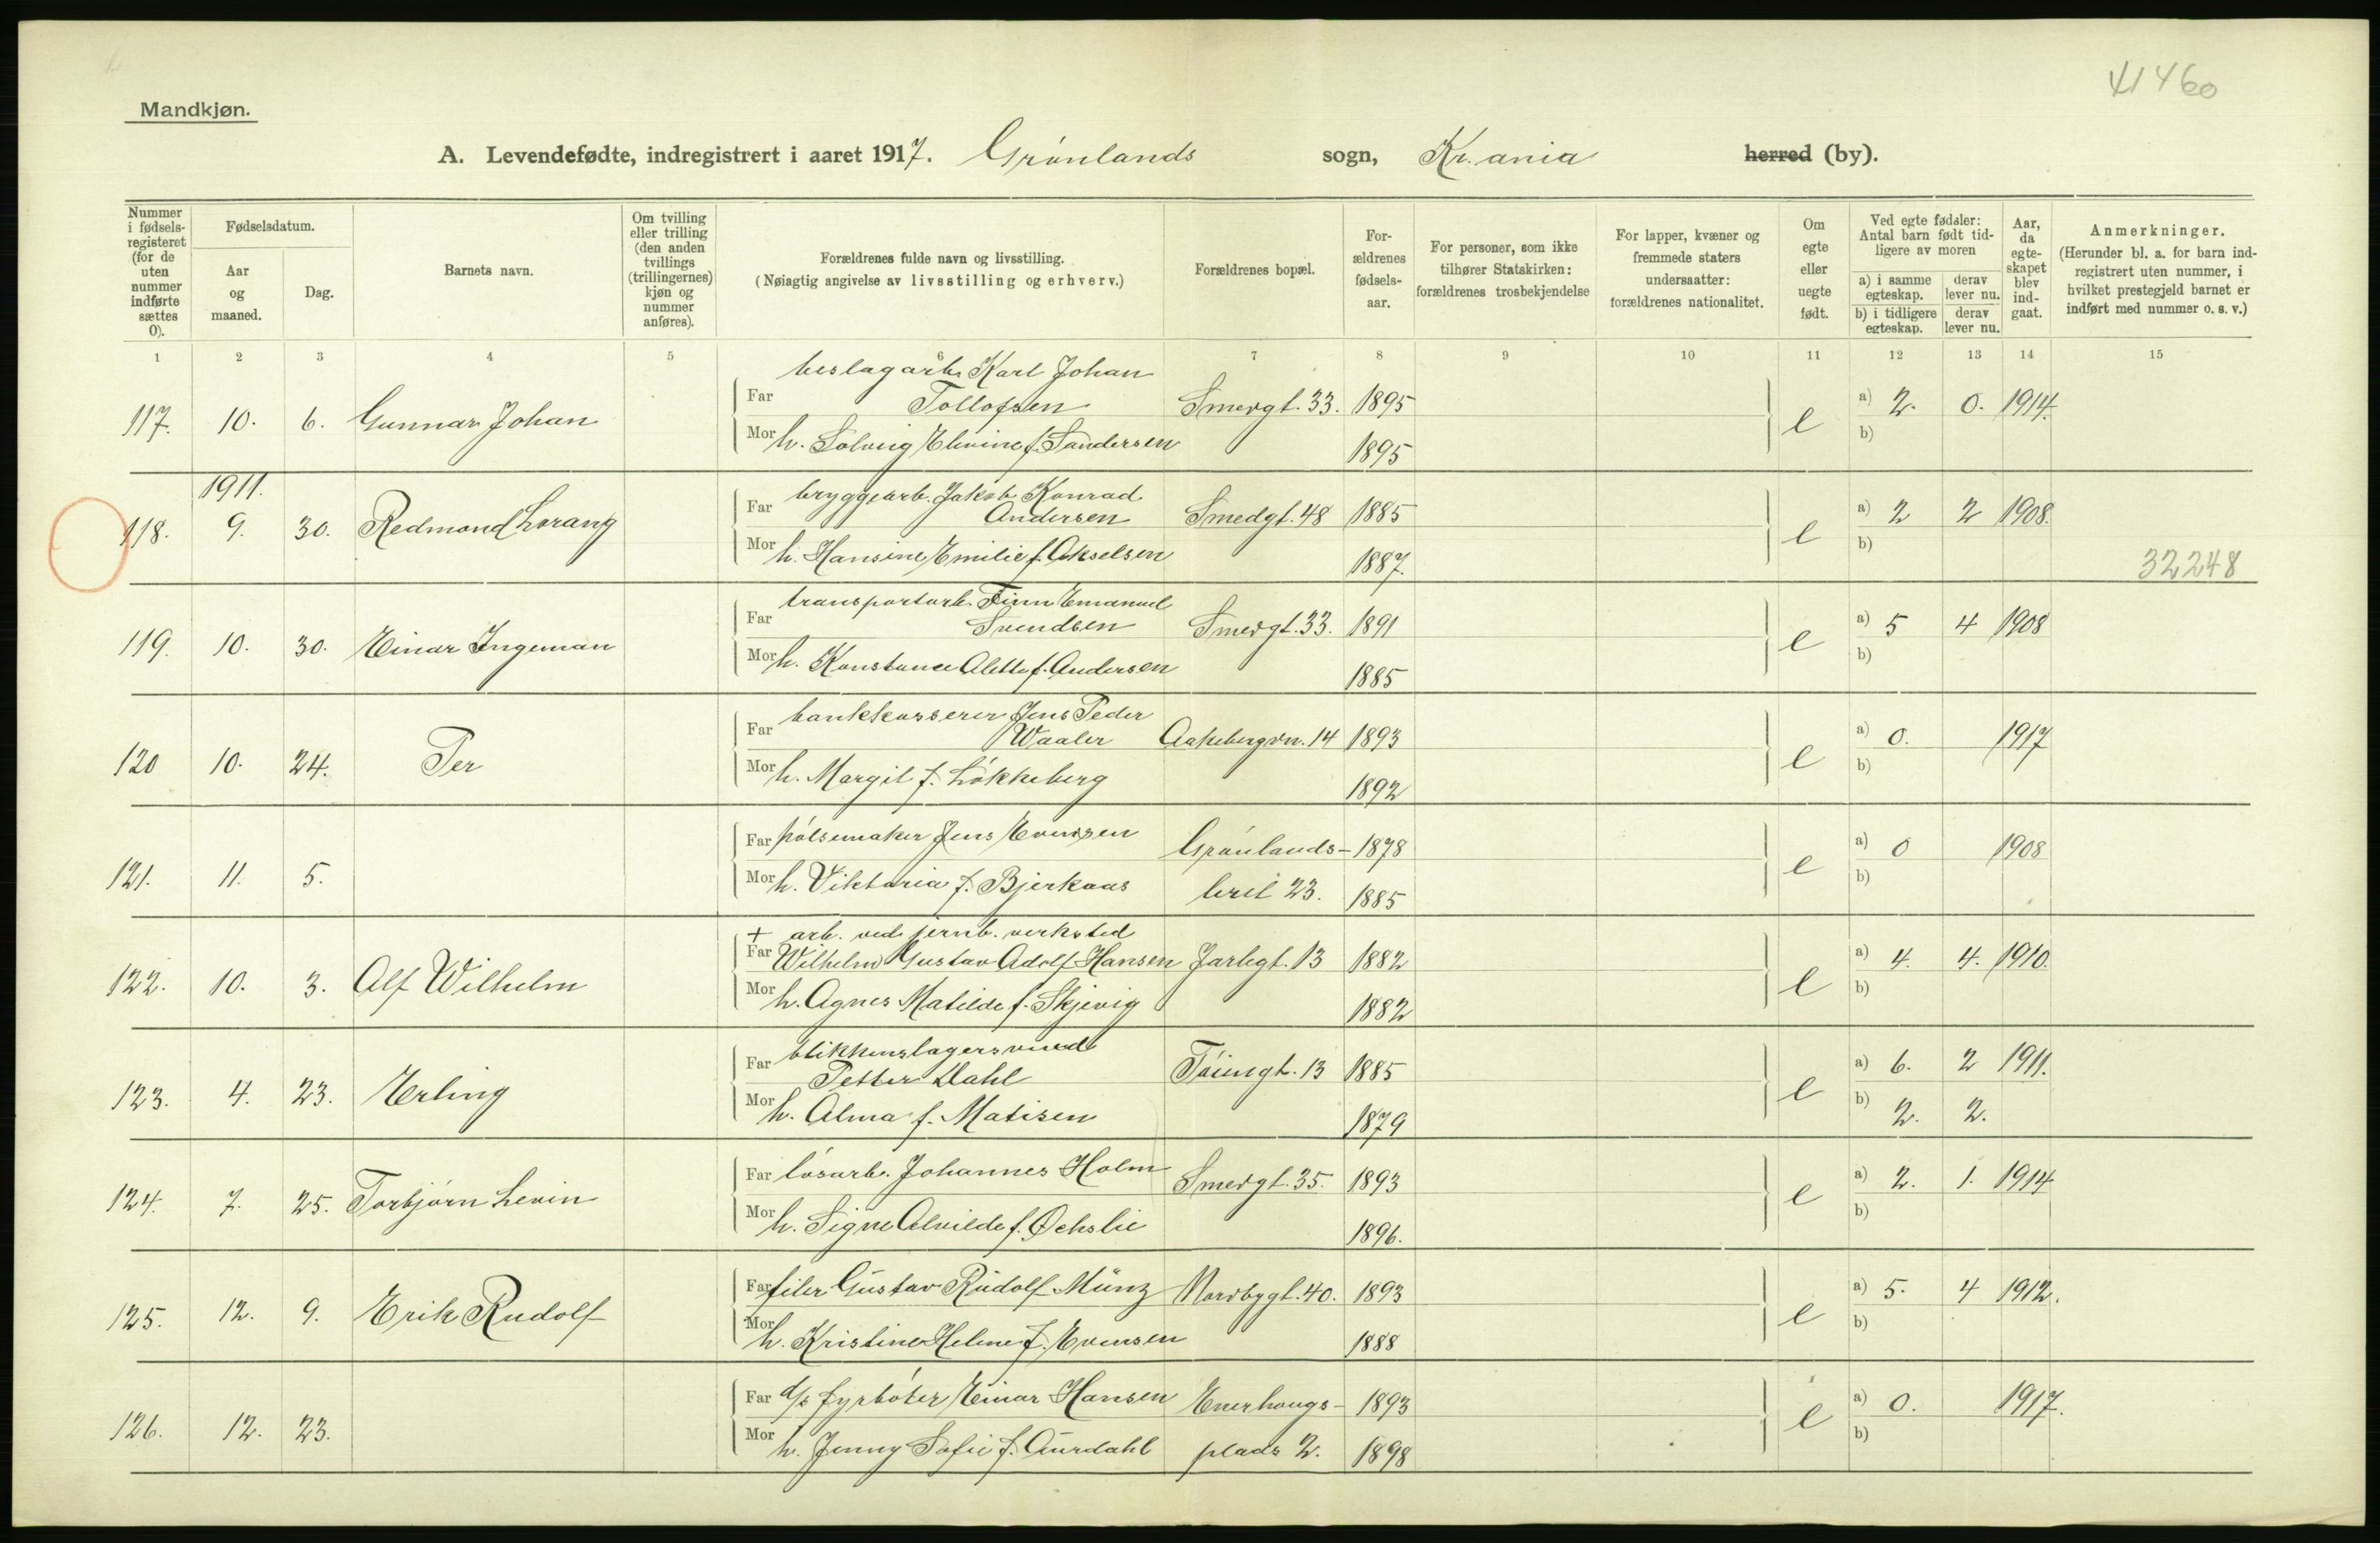 41460
Mandkjøn.
A. Levendefødte, indregistrert i aaret 1917. Grønlands sogn, Kr.ania herred (by).
Nummer i fødsels-registeret (for de uten nummer indførte sættes 0).
Fødselsdatum.
Aar og maaned.
Dag.
Barnets navn.
Om tvilling eller trilling (den anden tvillings (trillingernes) kjøn og nummer anføres).
Forældrenes fulde navn og livsstilling.
(Nøiagtig angivelse av livsstilling og erhverv.)
Forældrenes bopæl.
For-ældrenes fødsels-aar.
For personer, som ikke tilhører Statskirken: forældrenes trosbekjendelse
For lapper, kvæner og fremmede staters undersaatter: forældrenes nationalitet.
Om egte eller uegte født.
Ved egte fødsler: Antal barn født tid-ligere av moren
a) i samme egteskap. derav lever nu.
b) i tidligere egteskap. derav lever nu.
Aar, da egte-skapet blev ind-gaat.
Anmerkninger.
(Herunder bl. a. for barn ind-registrert uten nummer, i hvilket prestegjeld barnet er indført med nummer o. s. v.)
1 2 3 4 5 6 7 8 9 10 11 12 13 14 15
beslagarb. Karl Johan
117. 10. 6. Gunnar Johan Far Tollofsen Smedgt. 33. 1895 e a) 2. 0. 1914.
Mor h. Solveig Elvine f. Sandersen 1895 b)
1911.
118. 9. 30. Redmond Lorang Far bryggearb. Jakob Konrad
Andersen Smedgt. 48 1885 e a) 2 2 1908.
Mor h. Hansine Emilie f. Akselsen 1887. b) 32248
transportarb. Finn Emanuel
119. 10. 30. Einar Ingeman Far Svendsen Smedgt. 33. 1891 e a) 5 4 1908
Mor h. Konstance Alette f. Andersen 1885 b)
bankkasserer Jens Peder
120 10. 24. Per Far Waaler Aakebergvn. 14 1893 e a) 0. 1917
Mor h. Margit f. Løkkeberg 1892 b)
121. 11. 5. Far pølsemaker Jens Evensen Grønlands- 1878 e a) 0 1908
Mor h. Viktoria f. Bjerkaas bril 23. 1885 b)
+ arb. ved jernb. verksted
122. 10. 3. Alf Wilhelm Far Wilhelm Gustav Adolf Hansen Jarlegt. 13 1882 e a) 4. 4. 1910.
Mor h. Agnes Matilde f. Skjevig 1882 b)
blikkenslagersvend
123. 4. 23. Erling Far Petter Dahl Tøiengt. 13 1885 e a) 6. 2 1911.
Mor h. Alma f. Matisen 1879 b) 2. 2.
124. 7. 25. Torbjørn Levin Far løsarb. Johannes Holm Smedgt. 35. 1893 e a) 2. 1. 1914
Mor h. Signe Alvilde f. Øchslie 1896. b)
125. 12. 9. Erik Rudolf Far filer Gustav Rudolf Münz Nordbygt. 40. 1893 e a) 5. 4 1912.
Mor h. Kristine Helene f. Evensen 1888 b)
126. 12. 23. Far d/s fyrbøter Einar Hansen Enerhougs- 1893 e a) 0. 1917.
Mor h. Jenny Sofie f. Aurdahl plads 2. 1898 b)